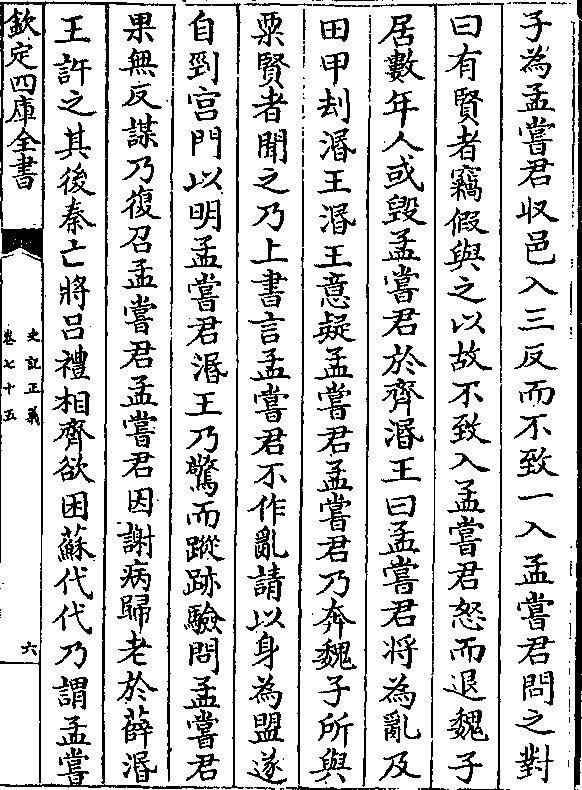 子為孟嘗君収邑入三反而不致一入孟嘗君問之對
曰有賢者竊假與之以故不致入孟嘗君怒而退魏子
居數年人或毀孟嘗君於齊湣王曰孟嘗君將為亂及
田甲刦湣王湣王意疑孟嘗君孟嘗君乃奔魏子所與
粟賢者聞之乃上書言孟嘗君不作亂請以身為盟遂
自剄宫門以明孟嘗君湣王乃驚而蹤跡驗問孟嘗君
果無反謀乃復召孟嘗君孟嘗君因謝病歸老於薛湣
王許之其後秦亡將吕禮相齊欲困蘇代代乃謂孟嘗
欽定四庫全書
史記正義
卷七十五
六